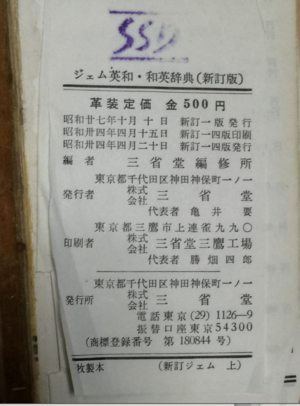 SSD
ジェム英和・和英辞典(新訂版)
革装定価 金500円
昭和廿七年十月十日 新訂一版発行
昭和卅四年四月十五日 新訂一四版印刷
昭和卅四年四月二十日 新訂一四版発行
編者 三省堂編修所
東京都千代田区神田神保町一ノ一
発行者 株式会社 三省堂
代表者 亀井要
東京都三鷹市上連雀九九〇
印刷者 株式会社 三省堂三鷹工場
代表者 勝畑四郎
東京都千代田区神田神保町一ノ一
発行所 株式会社 三省堂
電話東京(29)1126-9
振替口座東京54300
(商標登録番号 第180844号)
牧製本 (新訂ジェム 上)